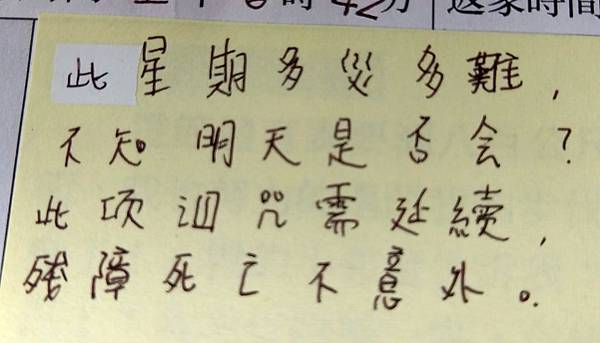 時42分 返家時間
此星期多災多難,
不知明天是否会?
此项诅咒需延續,
残障死亡不意外。